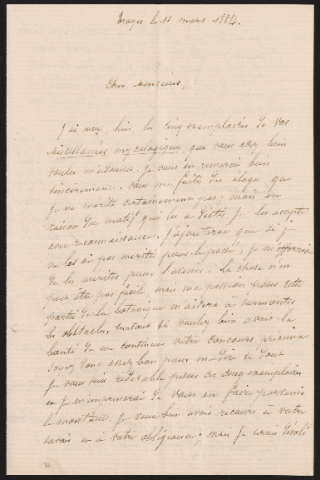 Troyes le 10 mars 1884.
Cher Monsieur,
J'ai reçu, hier, les cinq exemplaires de vos
Miscellanées mycologiques que vous avez bien
voulu m'adresser. Je vous en remercie bien
sincèrement. Vous me faites des éloges que
je ne mérite certainement pas; mais en
raison du motif qui les a dictés je les accepte
avec reconnaissance. J'ajouterai que si je
ne les ai pas mérités pour le passé, je m'efforcerai
de les mériter pour l'avenir. La chose n'en
peut être pas facile mais ma passion pour cette
partie de la botanique m'aidera à surmonter
les obstacles surtout si vous voulez bien avoir la
bonté de me continuer votre concours précieux
Soyez donc assez bon pour me dire ce dont
je vous suis redevable pour ces cinq exemplaires
et je m'empresserai de vous en faire parvenir
le montant. Je veux bien avoir recours à votre
savoir et à votre obligeance; mais je serais désolé